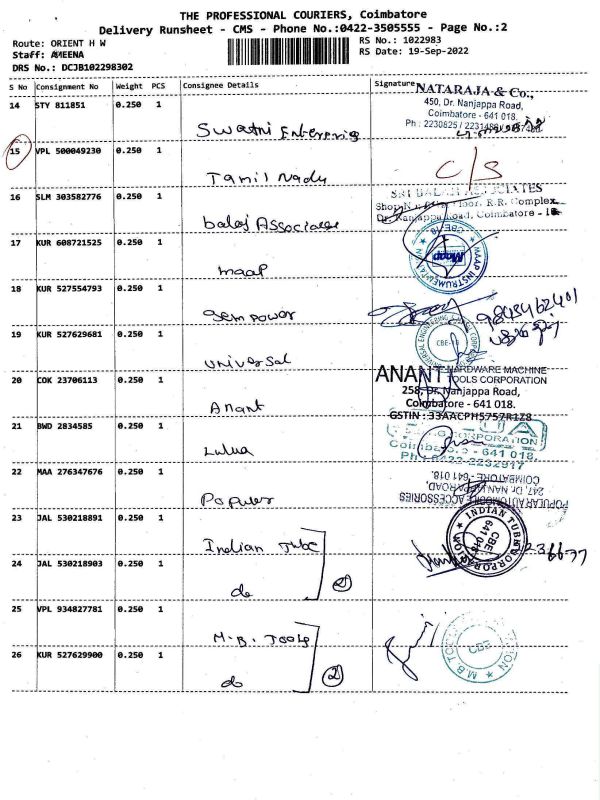 THE PROFESSIONAL COURIERS, Coimbatore
Delivery Runsheet - CMS - Phone No.:0422-3505555 - Page No.:2
Route: ORIENT H W
Staff: AMEENA
DRS No.: DCJB102298302
RS No.: 1022983
RS Date: 19-Sep-2022
S No Consignment No Weight PCS Consignee Details Signature
NATARAJA & Co.,
450, Dr. Nanjappa Road,
Coimbatore - 641 018.
14 STY 811851 0.250 1
Swathi Enterprises
15 VPL 500049230 0.250 1
Tamil Nadu
C/S
16 SLM 303582776 0.250 1
SRI BALAJI ASSOCIATES
R.R. Complex,
Dr. Nanjappa Road, Coimbatore - 18
Balaj Associates
17 KUR 608721525 0.250 1
Maap
MAAP INSTRUMENTATION
CBE-18
Maap
18 KUR 527554793 0.250 1
Sempower
9843462401
19 KUR 527629681 0.250 1
Universal
CBE-18
20 COK 23706113 0.250 1
Anant
ANANT HARDWARE MACHINE
TOOLS CORPORATION
258, Dr. Nanjappa Road,
Coimbatore - 641 018.
GSTIN :33AACPH5757R1Z8
21 BWD 2834585 0.250 1
Lulua
CORPORATION
Coimbatore - 641 018.
Ph : 0422-2232917
22 MAA 276347676 0.250 1
Populer
POPULAR AUTOMOBILE ACCESSORIES
247, Dr. NANJAPPA ROAD,
COIMBATORE - 641 018.
23 JAL 530218891 0.250 1
Indian Tube
INDIAN TUBE CORPORATION
CBE
641 018
24 JAL 530218903 0.250 1
do
2
25 VPL 934827781 0.250 1
M.B. Tools
26 KUR 527629900 0.250 1
do
2
CBE